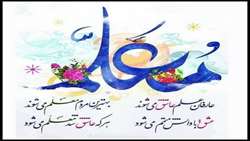 معلم
عارفان علم عاشق می شوند بهترین مردم معلم می شوند
عشق با دانش متمم می شود هر که عاشق شد معلم می شود